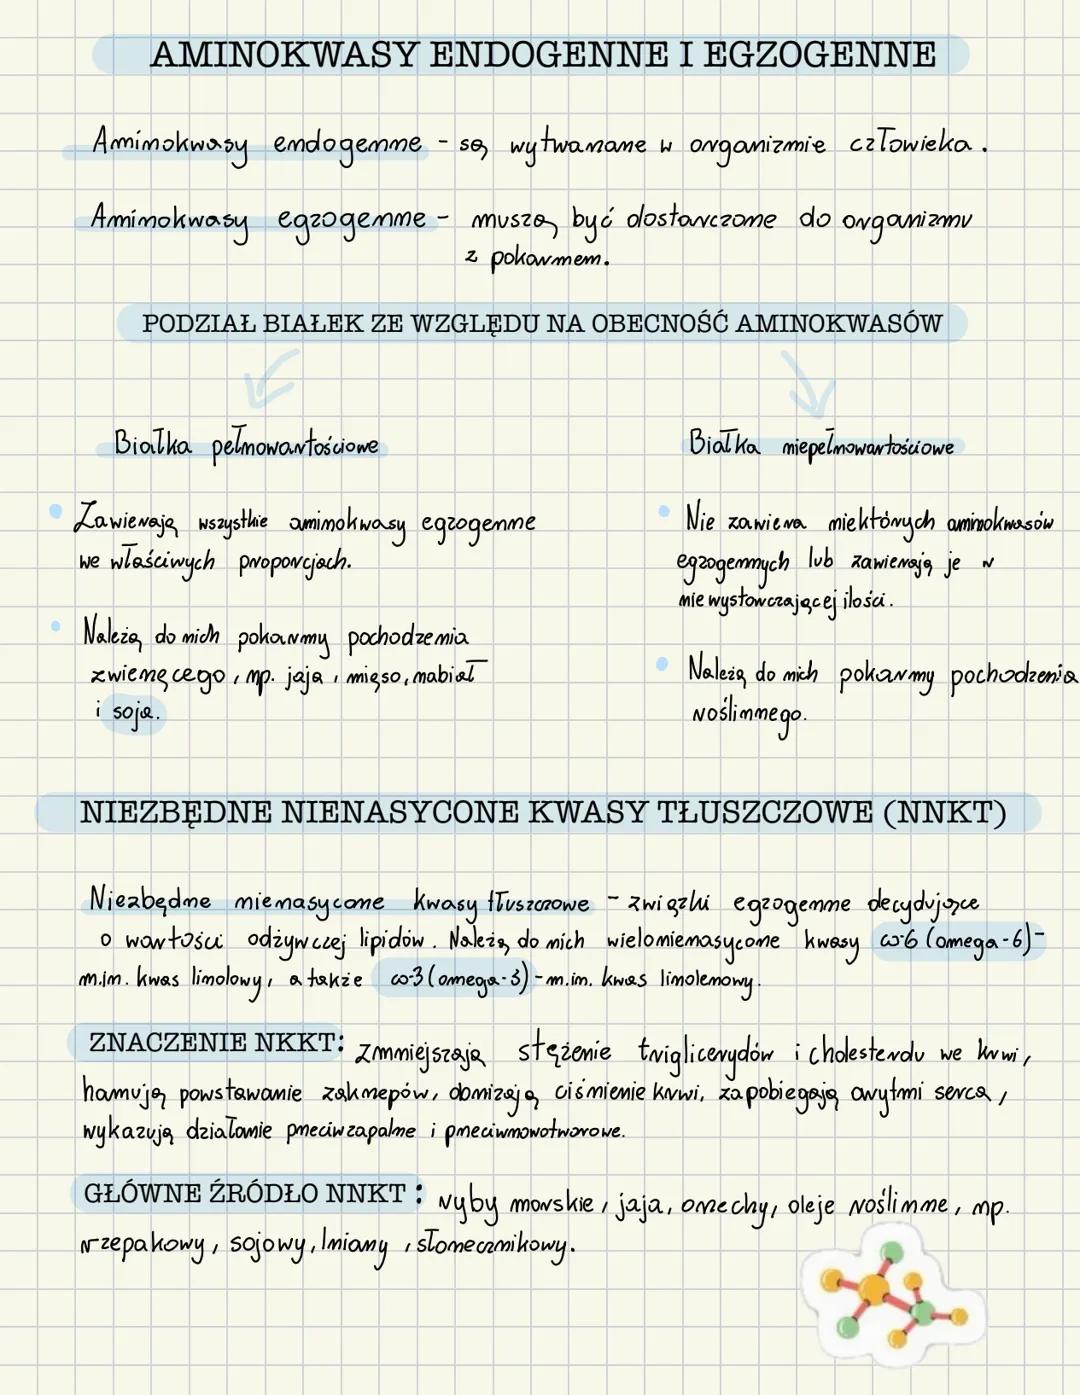 AMINOKWASY ENDOGENNE I EGZOGENNE
Aminokwasy endogenne - są wytwarzane w organizmie człowieka.
Aminokwasy egzogenne - muszą być dostarczone do organizmu
z pokarmem.
PODZIAŁ BIAŁEK ZE WZGLĘDU NA OBECNOŚĆ AMINOKWASÓW
Białka pełnowartościowe
• Zawierają wszystkie aminokwasy egzogenne
we właściwych proporcjach.
• Należą do nich pokarmy pochodzenia
zwierzęcego, np. jaja, mięso, nabiał
i soja.
Białka niepełnowartościowe
• Nie zawiera niektórych aminokwasów
egzogennych lub zawierają je w
niewystarczającej ilości.
• Należą do nich pokarmy pochodzenia
roślinnego.
NIEZBĘDNE NIENASYCONE KWASY TŁUSZCZOWE (NNKT)
Niezbędne nienasycone kwasy tłuszczowe - związki egzogenne decydujące
o wartości odżywczej lipidów. Należą do nich wielonienasycone kwasy ω-6 (omega-6)-
m.in. kwas linolowy, a także ω-3 (omega-3) - m.in. kwas linolenowy.
ZNACZENIE NKKT: zmniejszają stężenie triglicerydów i cholesterolu we krwi,
hamują powstawanie zakrzepów, obniżają ciśnienie krwi, zapobiegają arytmi serca,
wykazują działanie przeciwzapalne i przeciwnowotworowe.
GŁÓWNE ŹRÓDŁO NNKT: ryby morskie, jaja, orzechy, oleje roślinne, np.
rzepakowy, sojowy, lniany, słonecznikowy.